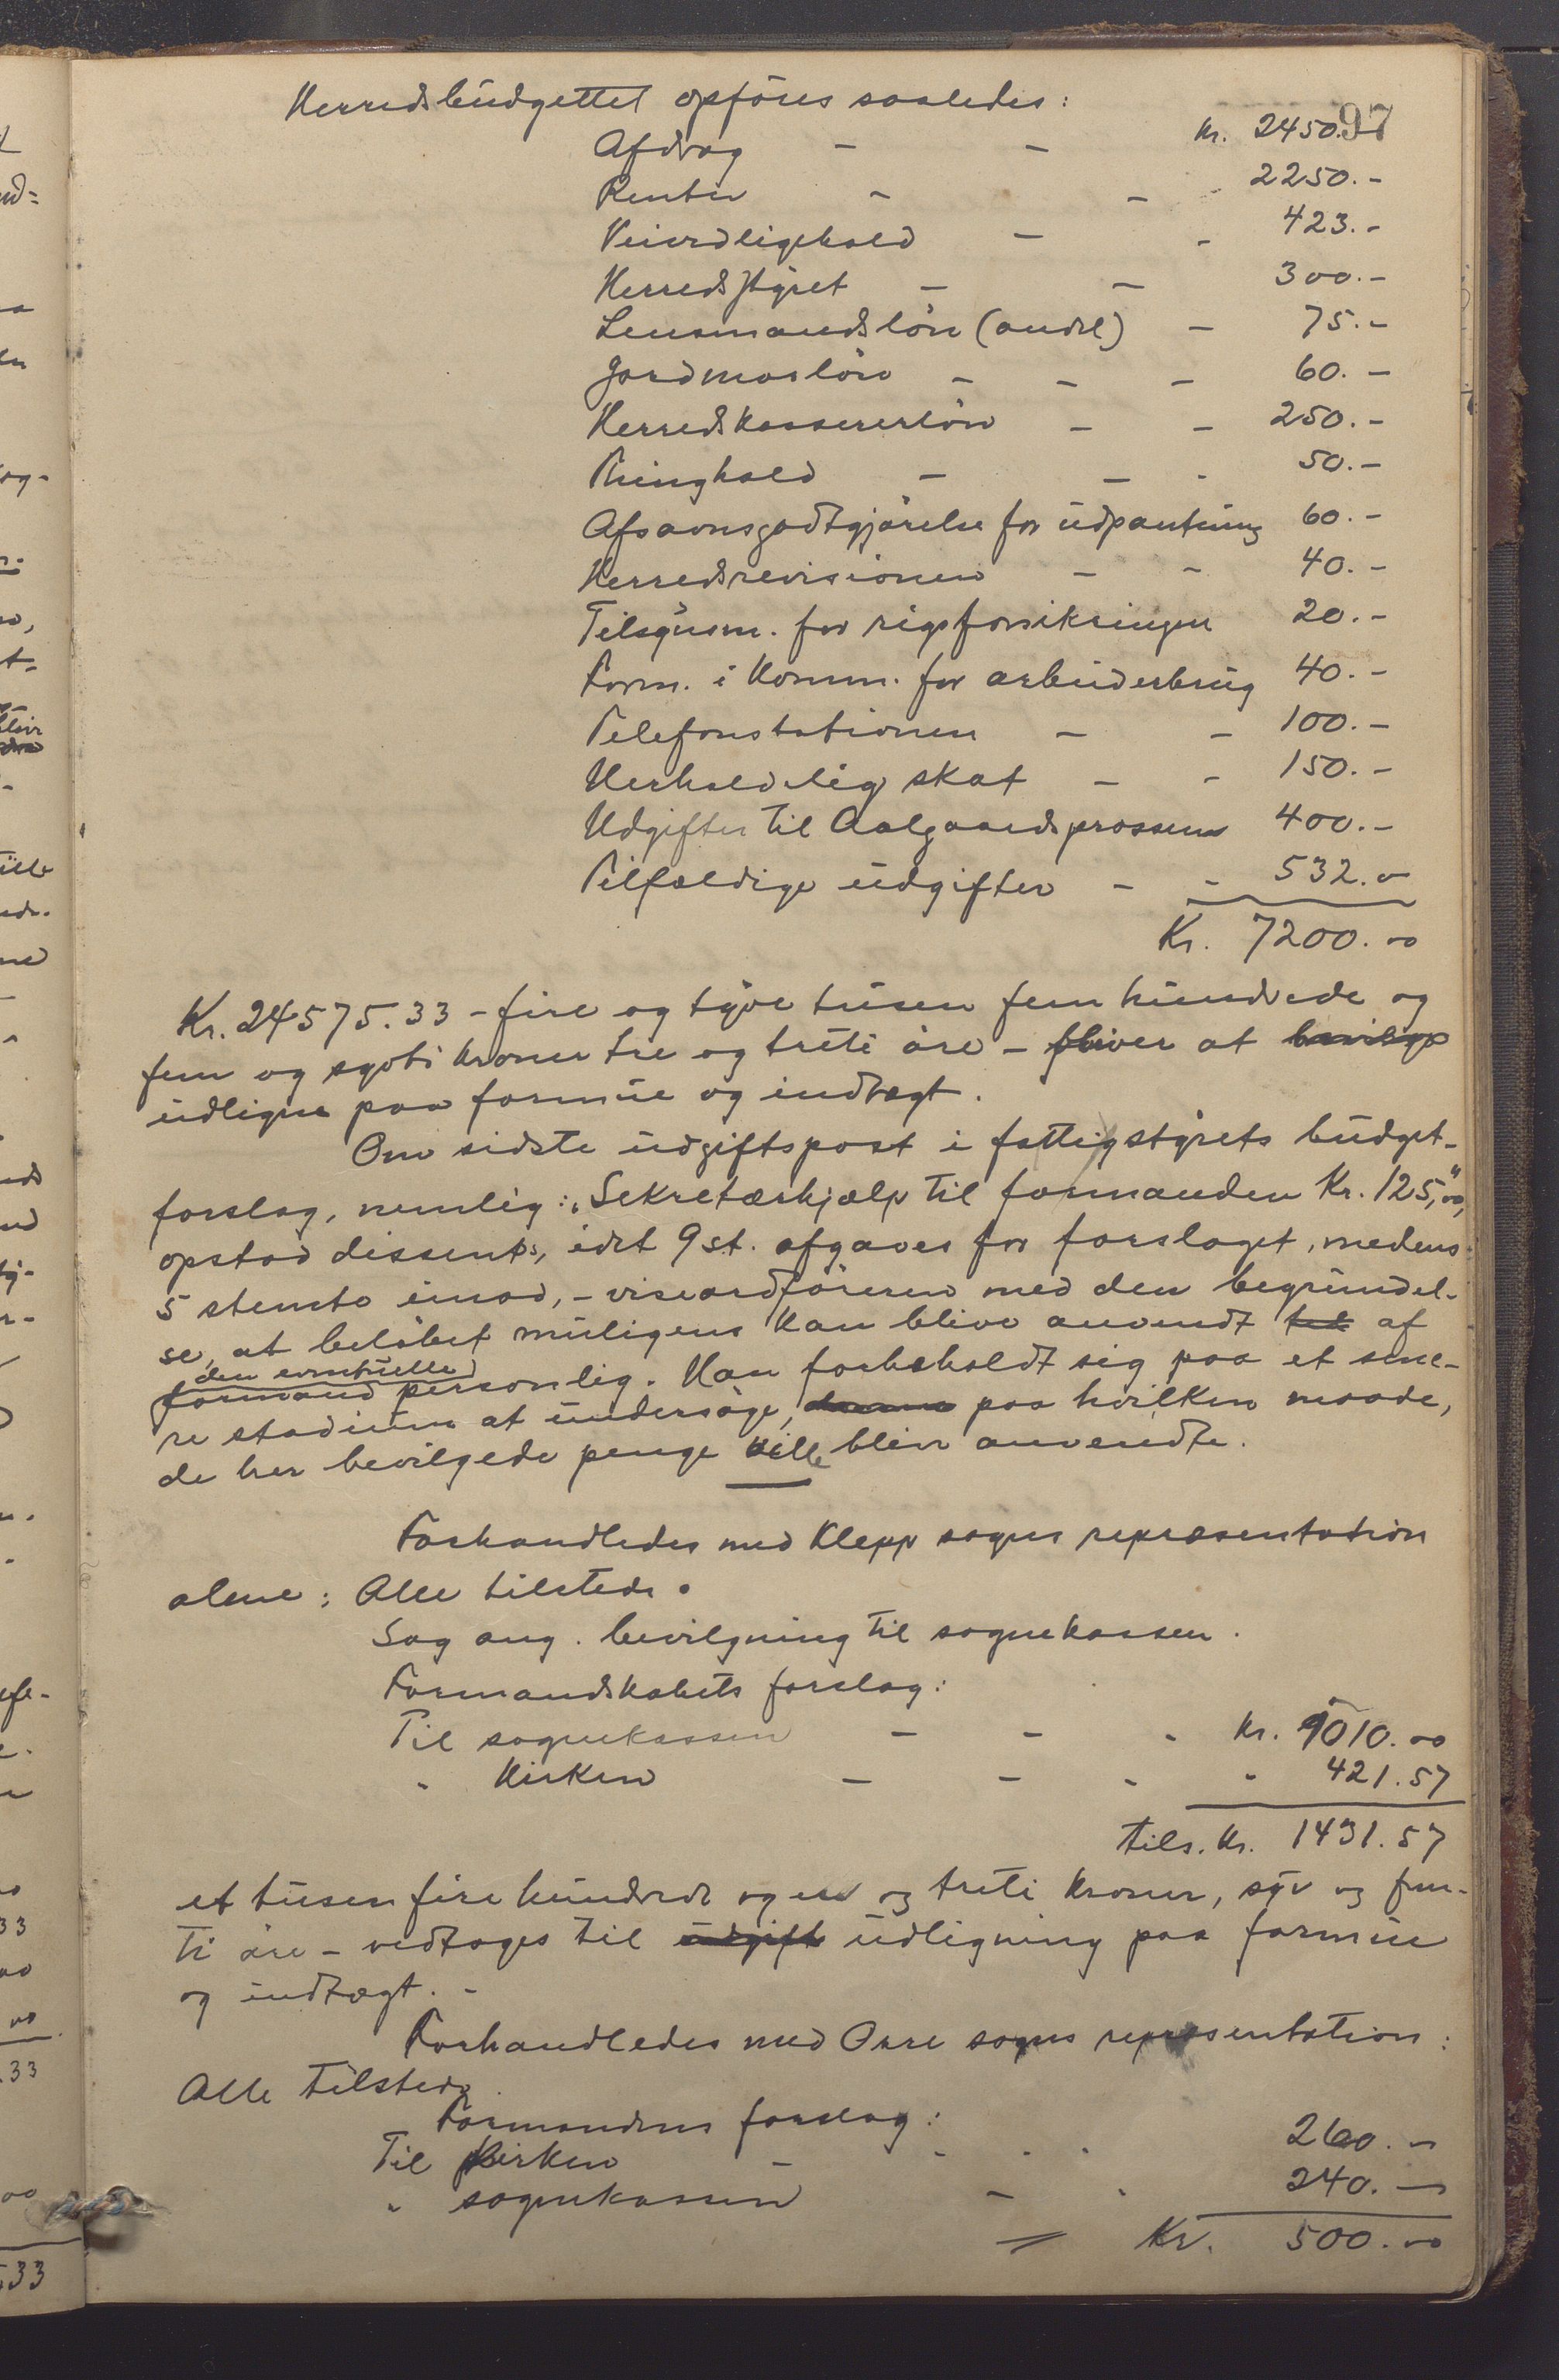 97
Herredsbudgettet opføres saaledes:
Afdrag - - Kr. 2450.-
Renter - - - 2250.-
Veivedligehold - - 423.-
Herredsstyret - - 300.-
Lensmandsløn (andel) - 75.-
Jordmorløn - - - 60.-
Herredskassererløn - - 250.-
Thinghold - - - 50.-
Afsavnsgodtgjørelse for udpantning 60.-
Herredsrevisionen - - 40.-
Tilsynsm. for rigsforsikringen 20.-
Form. i Komm. for arbeiderbrug 40.-
Telefonstationen - - 100.-
Uerholdelig skat - - 150.-
Udgifter til Aalgaardsprossessen 400.-
Tilfældige udgifter - - 532.00
Kr. 7200.00
Kr. 24575.33 - fire og tyve tusen fem hundrede og
fem og sytti kroner tre og tretti øre - bliver at bevilges
udligne paa formue og indtægt.
Om sidste udgiftspost i fattigstyrets budget-
forslag, nemlig: "Sekretærhjælp til formanden Kr. 125,00",
opstod dissents, idet 9 st. afgaves for forslaget, medens
5 stemte imod, - viseordføreren med den begrundel-
se, at beløbet muligens kan blive anvendt af
den eventuelle
formand personlig. Han forbeholdt sig paa et sene-
re stadium at undersøge, paa hvilken maade,
de her bevilgede penge ville blive anvendte.
Forhandledes med Klepp sogns repræsentation
alene: Alle tilstede.
Sag ang. bevilgning til sognekassen.
Formandskabets forslag:
Til sognekassen - - - Kr. 1010.00
" Kirken - - - " 421.57
tils. Kr. 1431.57
et tusen fire hundrede og en og tretti kroner, syv og fem-
ti øre - vedtages til udgift udligning paa formue
og indtægt. -
Forhandledes med Orre sogns repræsentation:
Alle tilstede.
Formandens forslag:
Til Kirken - - - - 260.-
" sognekassen - - 240.-
Kr. 500.00